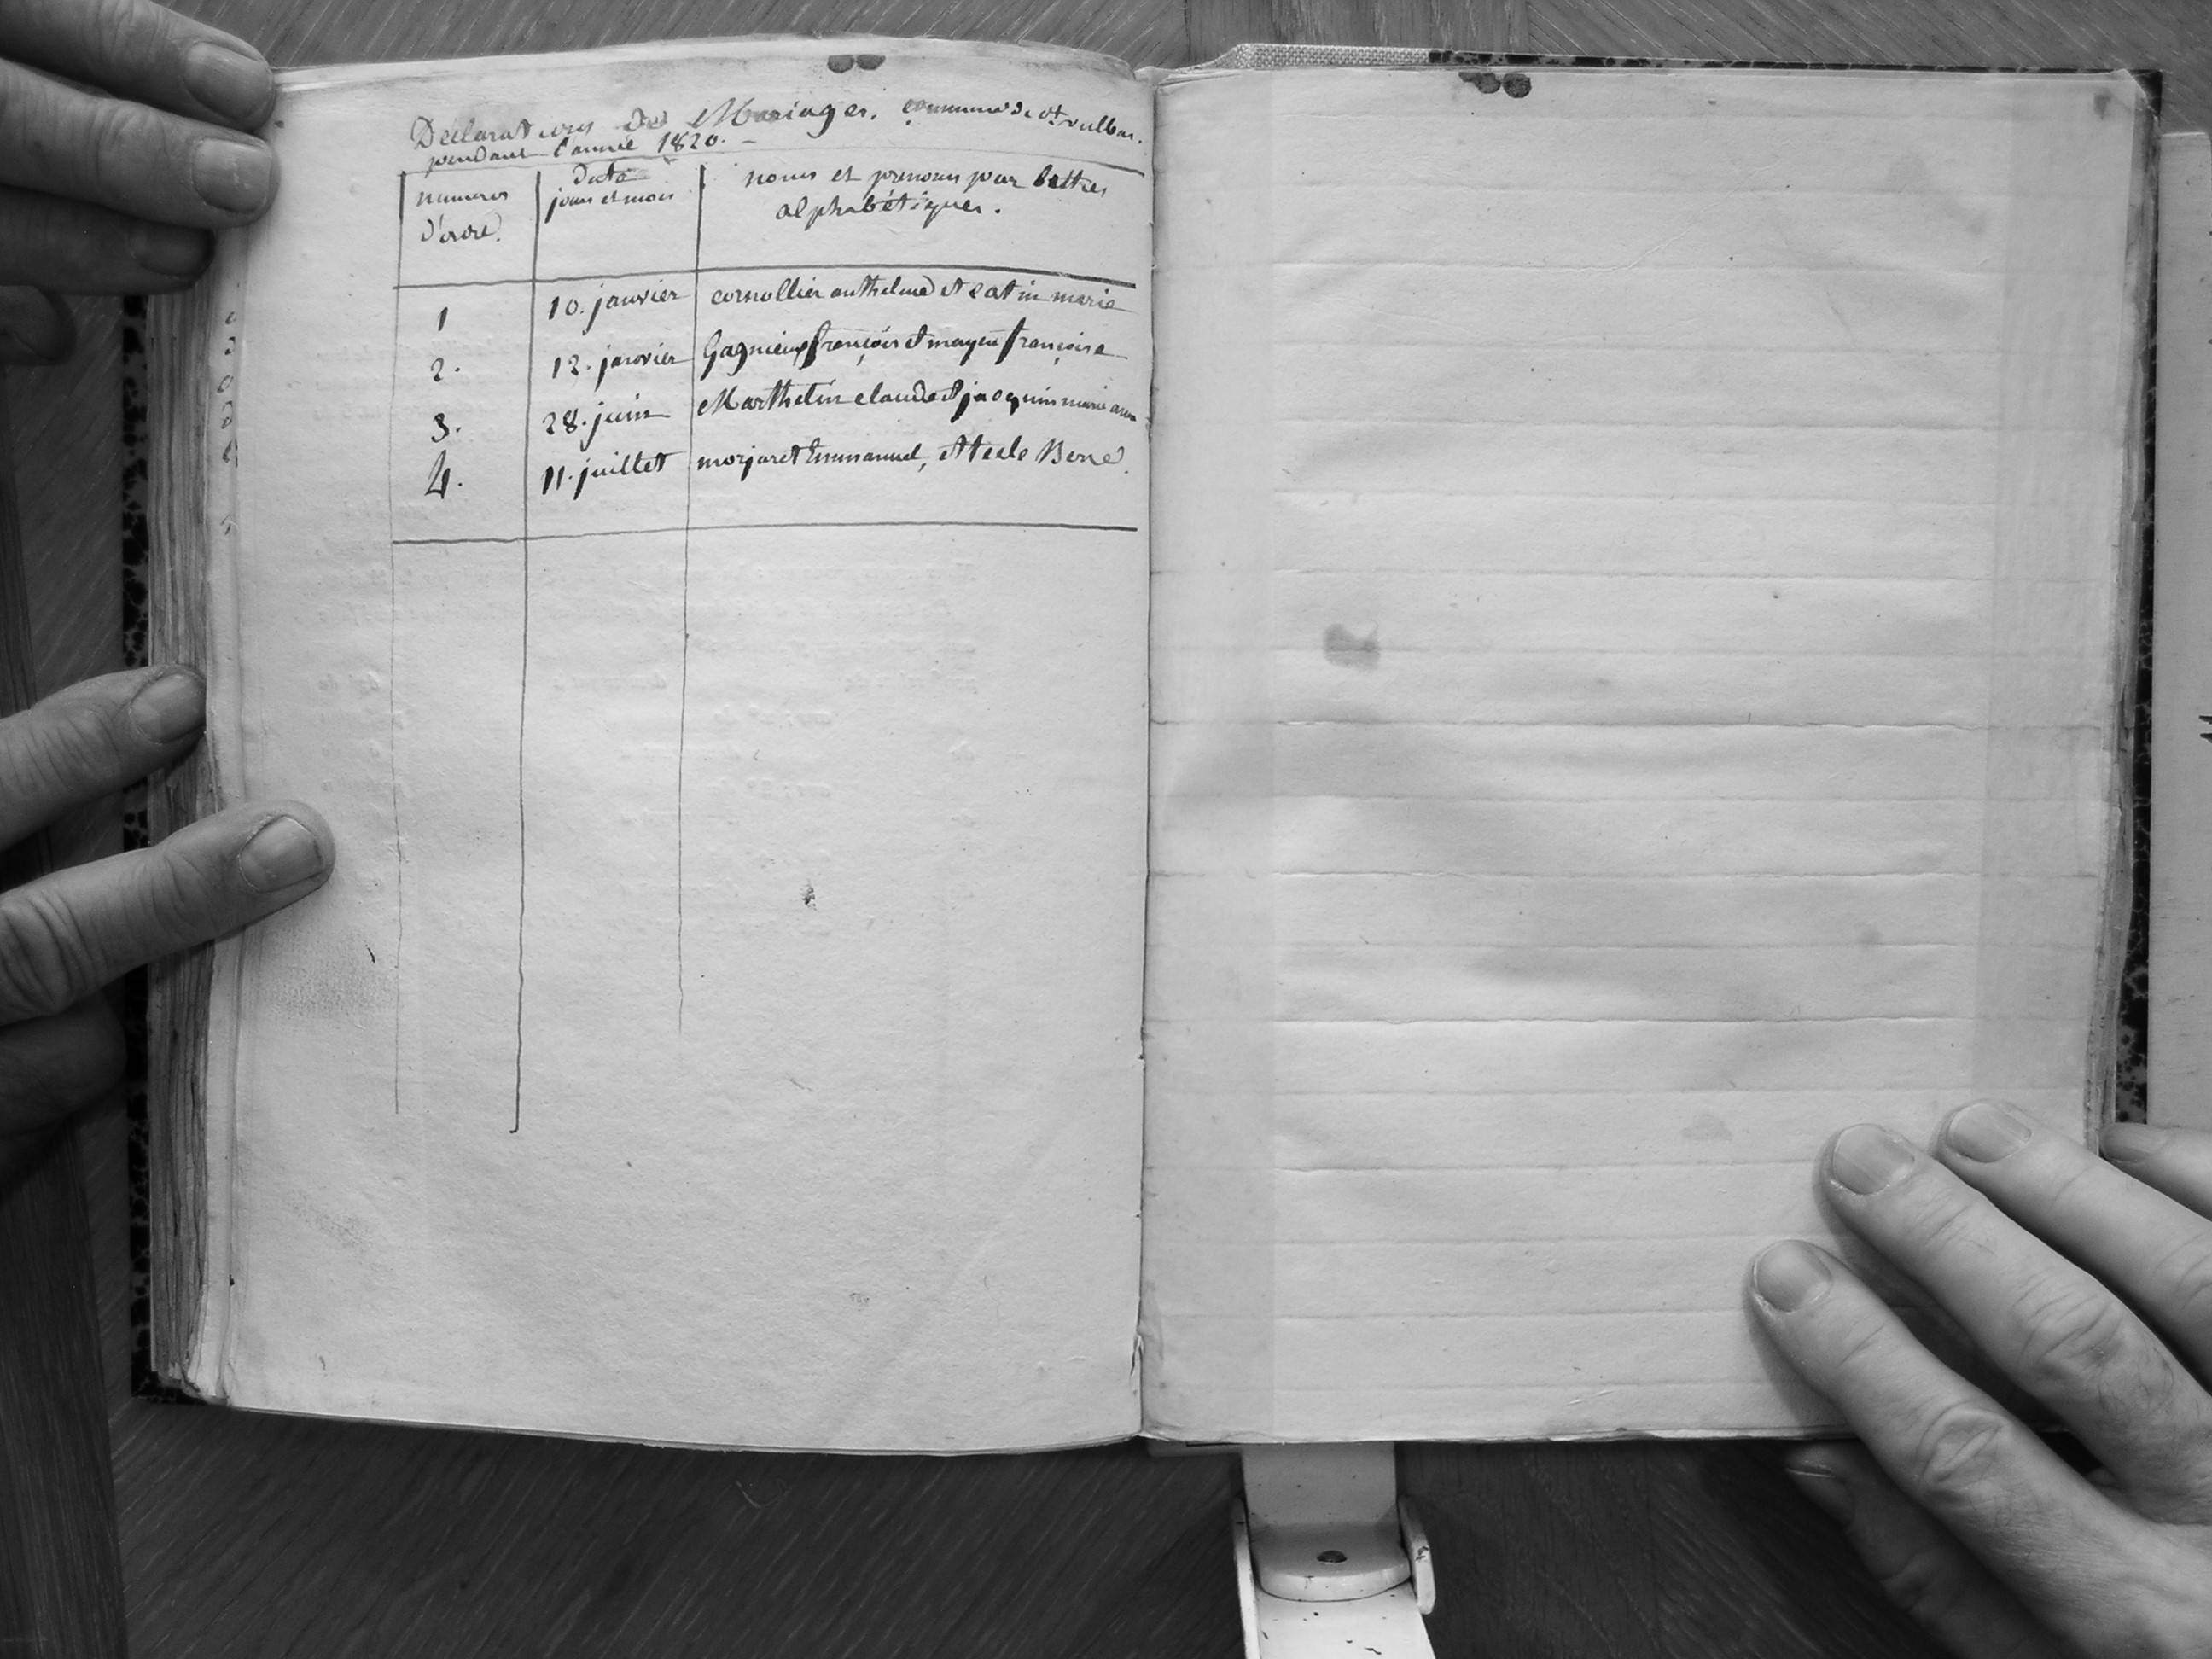 Déclarations des Mariages. commune de St vulbas.
pendant l'année 1820.
numeros
d'ordre.
date
jours et mois
noms et prenoms par lettres
alphabétiques.
1 10. janvier cornollier anthelme et catin marie
2. 12. janvier Gagnieux françois et françoise
3. 28. juin Marthelin claude et jacquin marie
4. 11. juillet morjaret Emmanuel, et